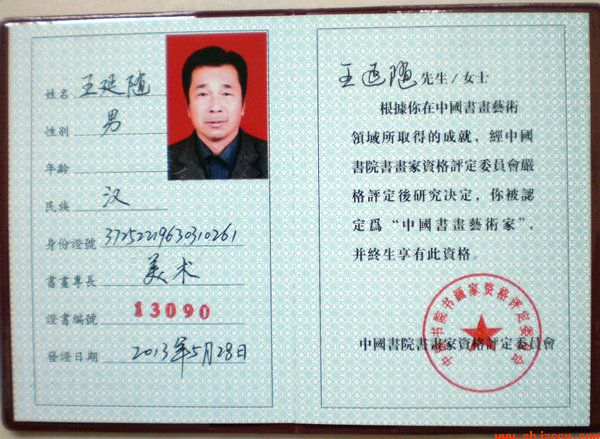 姓名 王延随
性别 男
年齡
民族 汉
身份證號 37252219630310261
書畫專長 美术
證書編號 13090
發證日期 2013年5月28日
王延随 先生/女士
根據你在中國書畫藝術
領域所取得的成就，經中國
書院書畫家資格評定委員會嚴
格評定後研究决定，你被認
定爲“中國書畫藝術家”，
并終生享有此資格。
中國書院書畫家資格評定委員會
中國书院书画家资格评定委员会